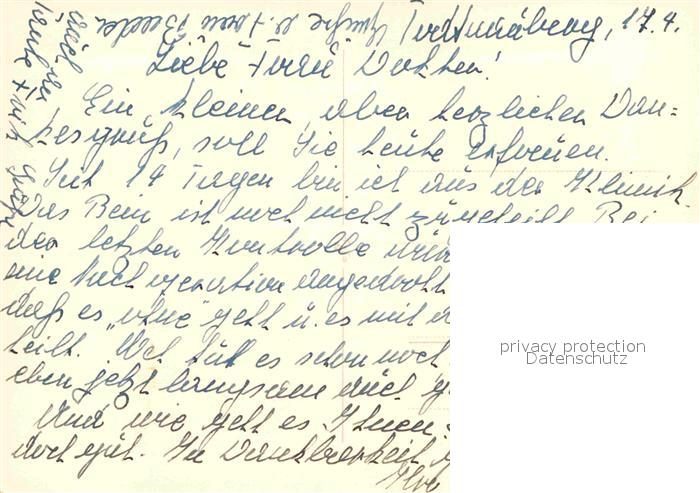 Freudenberg, 17.4.
Liebe Frau Dokter!
Ein kleiner, aber herzlicher Dan=
kesgruß, soll Sie heute erfreuen.
Seit 14 Tagen bin ich aus der Klinik.
Das Bein ist noch nicht zugeheilt. Bei
der letzten Kontrolle wurde
eine Nachoperation angedroht
daß es "ohne" geht u. es mit
heilt. Weh tut es schon noch
eben jetzt langsam auch
Und wie geht es Ihnen
doch gut. In Dankbarkeit
Ihre
Grüße u. Ihren Bruder
privacy protection
Datenschutz